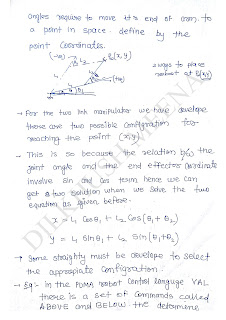 angles require to move the end of arm to
a point in space define by the
point coordinates.
(-ve)
L2
E(x,y)
2 ways to place
robot at E(x,y)
L1
(+ve)
→ For the two link manipulator we have develope
these are two possible configration for
reaching the point (x,y).
→ This is so because the relation b/w the
joint angle and the end effector coordinate
involve sin and cos term hence we can
get two solution when we solve the two
equation as given before.
x = L1 cosθ1 + L2 cos(θ1 + θ2)
y = L1 sinθ1 + L2 sin(θ1+θ2)
→ Some straighty must be develope to select
the appropiate configration.
→ Eg:- In the PUMA robot control language VAL
there is a set of commands called
ABOVE and BELOW the determine